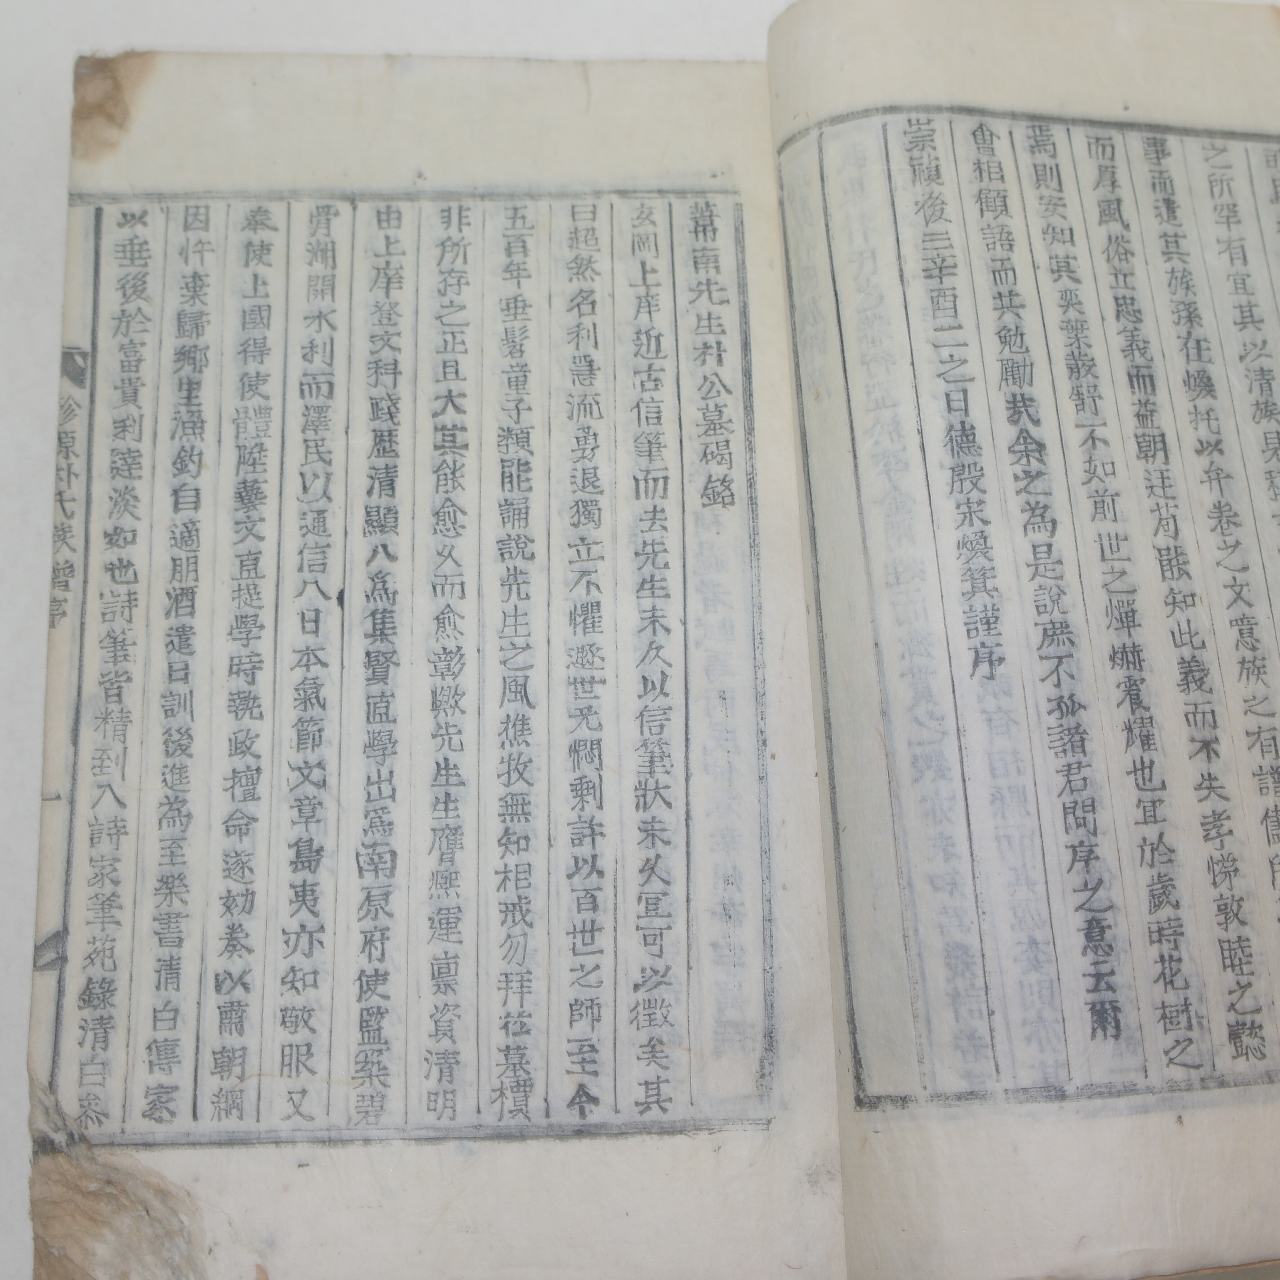 之所罕有宜其以清族
事而遣其族孫在煥托以弁卷之文噫族之有譜
而厚風俗立忠義而益朝廷苟能知此義而不失孝悌敦睦之懿
焉則安知其奕葉蕃舒不如前世之燀爀震耀也宜於歲時花樹之
會相顧語而共勉勵哉余之為是說庶不孤諸君問序之意云爾
崇禎後三辛酉二之日德殷宋煥箕謹序
葦南先生朴公墓碣銘
玄岡上庠近古信筆而去先生未久以信筆狀未久宜可以徵矣其
曰超然名利急流勇退獨立不懼遯世无悶剩許以百世之師至今
五百年垂髫童子類能誦說先生之風樵牧無知相戒勿拜於墓檟
非所存之正且大其能愈久而愈彰歟先生生膺熙運禀資清明
由上庠登文科踐歷清顯入為集賢直學出為南原府使監築碧
骨湖開水利而澤民以通信入日本氣節文章島夷亦知敬服又
奉使上國得使體陞藝文直提學時執政擅命遂劾奏以肅朝綱
因忤棄歸鄉里漁釣自適朋酒遣日訓後進為至樂書清白傳家
以垂後於富貴利達淡如也詩筆皆精到入詩家筆苑錄清白叅
珍原朴氏族譜序
一